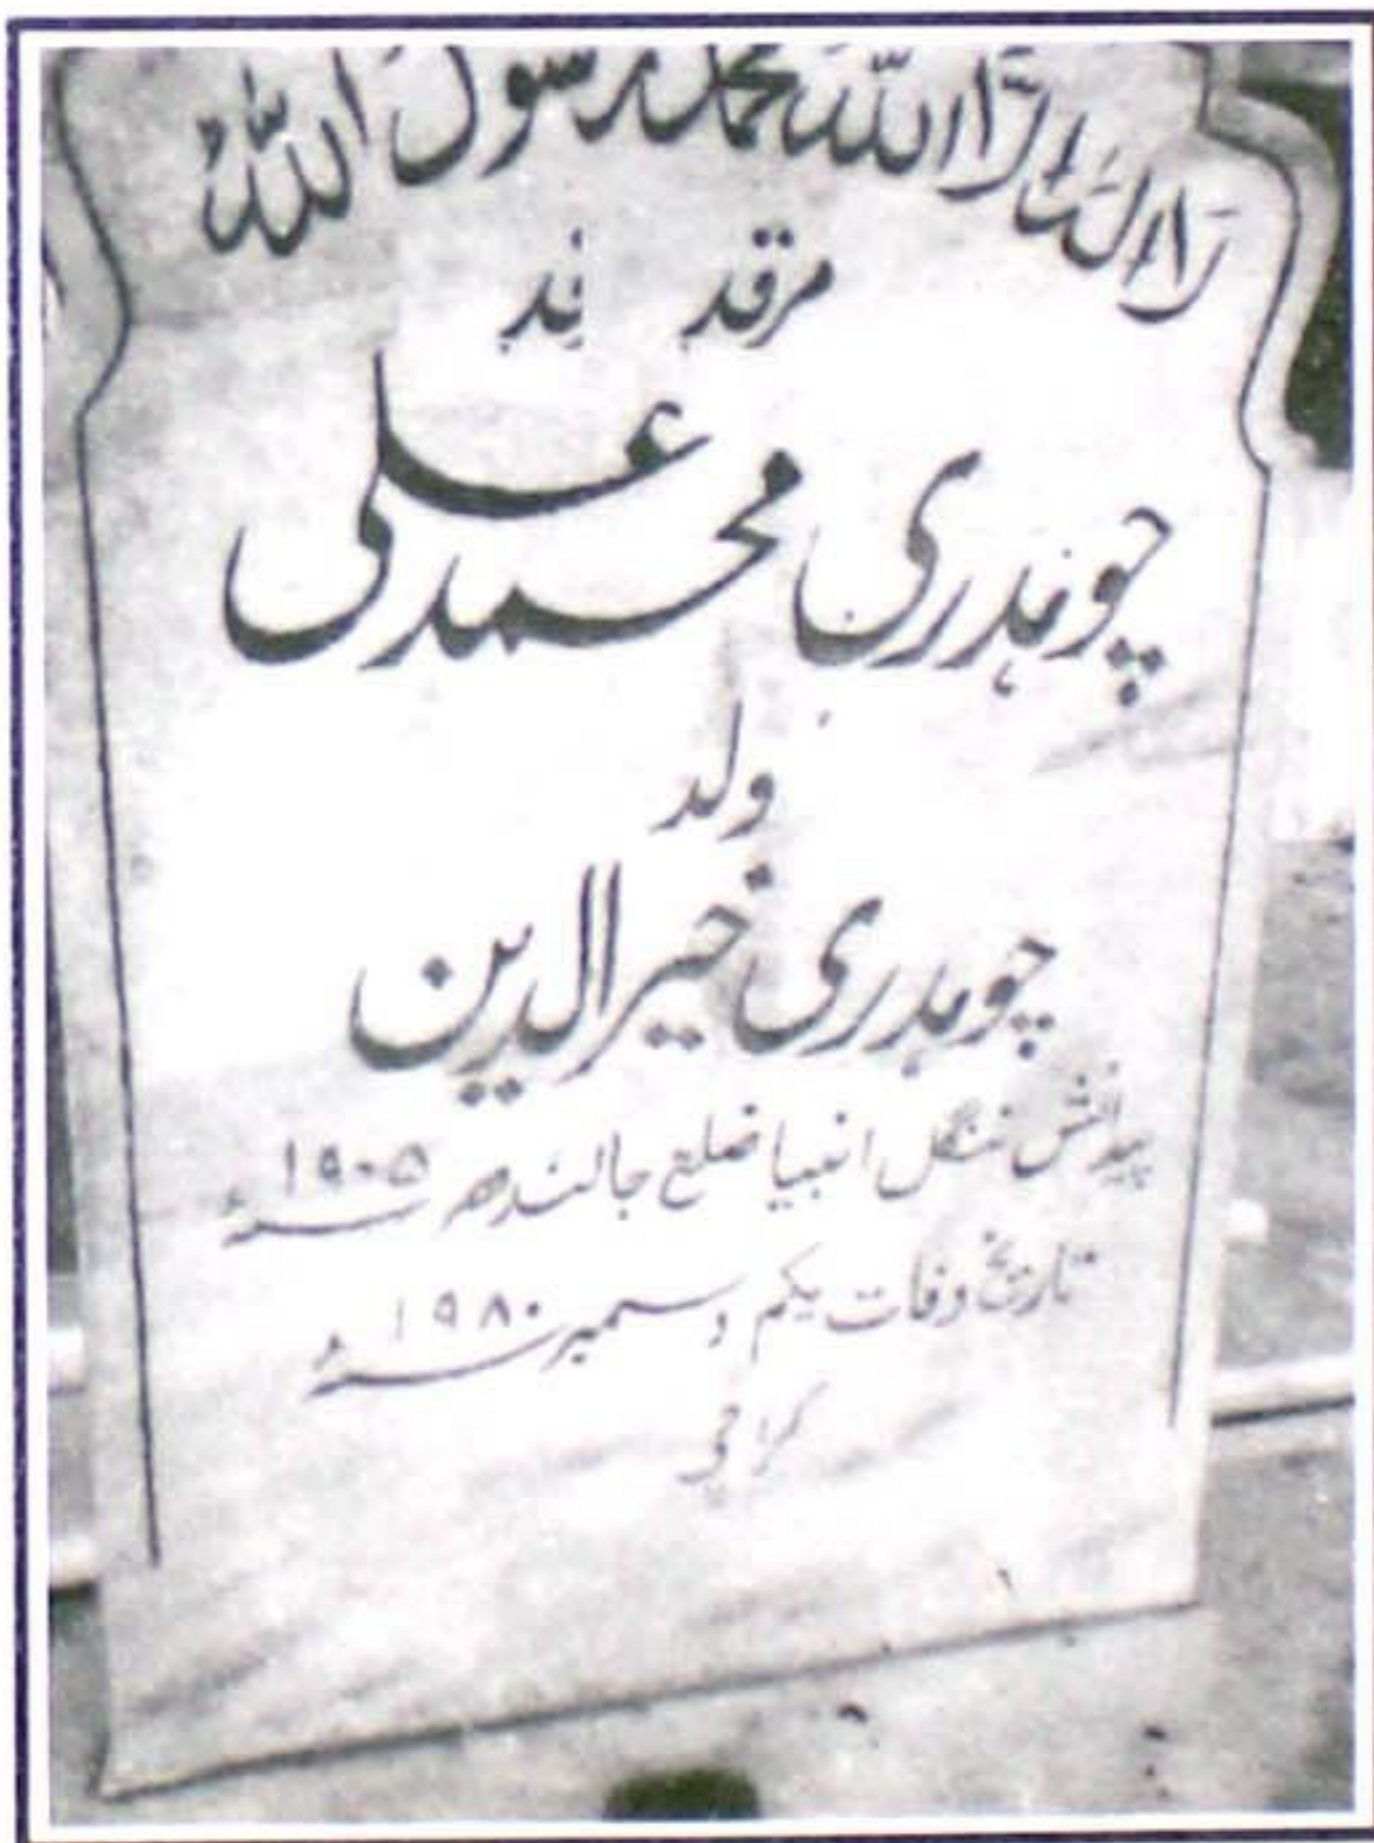 لا اله الا الله محمد رسول الله
مرقد
چوہدری محمد علی
ولد
چوہدری خیر الدین
پیدائش ننگل انبیا ضلع جالندھر ۱۹۰۵ء
تاریخ وفات یکم دسمبر ۱۹۸۰ء
کراچی